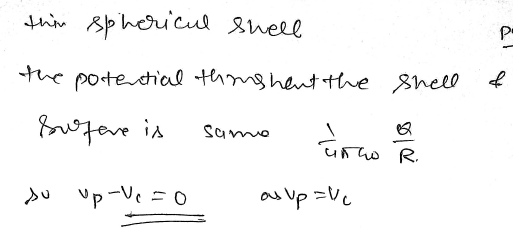 thin spherical shell
the potential throughout the shell &
surface is same 1/4π∈0 Q/R.
so Vp-Vc = 0 as Vp = Vc